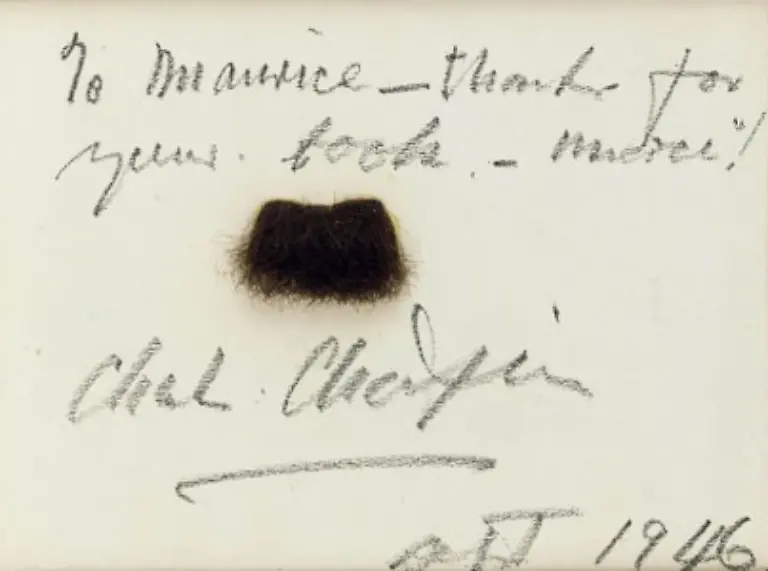 To Maurice – thanks for
your book. – merci!
Chas. Chaplin
1946